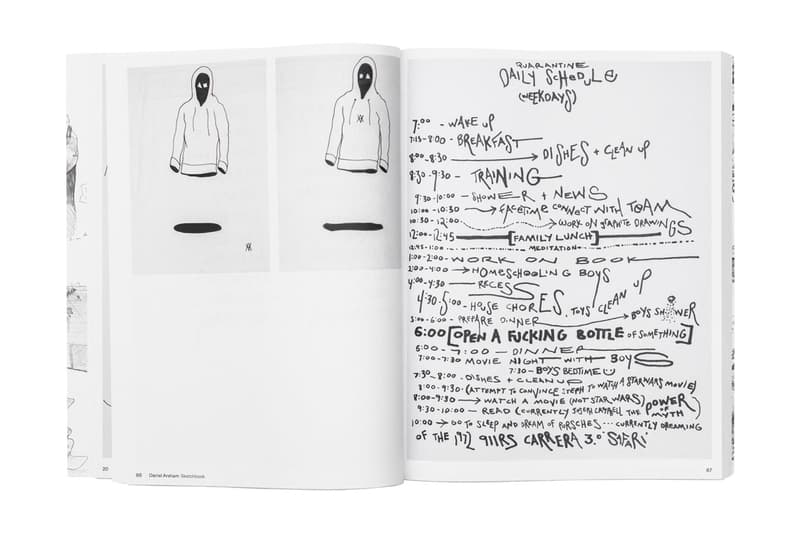 20
66 Daniel Arsham: Sketchbook
QUARANTINE
DAILY SCHEDULE
(WEEKDAYS)
7:00 - WAKE UP
7:15-8:00 - BREAKFAST
8:00-8:30 → DISHES + CLEAN UP
8:30-9:30 - TRAINING
9:30-10:00 - SHOWER + NEWS
10:00-10:30 → FACETIME CONNECT WITH TEAM
10:30-12:00 → WORK ON GRAPHITE DRAWINGS
12:00-12:45 [FAMILY LUNCH]
12:45-1:00 - MEDITATION
1:00-2:00 - WORK ON BOOK
2:00-4:00 → HOMESCHOOLING BOYS
4:00-4:30 - RECESS
4:30-5:00 - HOUSE CHORES, TOYS CLEAN UP
5:00-6:00 - PREPARE DINNER → BOYS SHOWER
6:00 [OPEN A FUCKING BOTTLE OF SOMETHING]
6:00-7:00 - DINNER
7:00-7:30 MOVIE NIGHT WITH BOYS
7:30 - BOYS BEDTIME
7:30-8:00 - DISHES + CLEAN UP
8:00-9:30 - (ATTEMPT TO CONVINCE STEPH TO WATCH A STARWARS MOVIE)
8:00-9:30 → WATCH A MOVIE (NOT STAR WARS)
9:30-10:00 - READ (CURRENTLY JOSEPH CAMPBELL THE POWER OF MYTH
10:00 → GO TO SLEEP AND DREAM OF PORSCHES... CURRENTLY DREAMING
OF THE 1972 911RS CARRERA 3.0 'SAFARI'
67